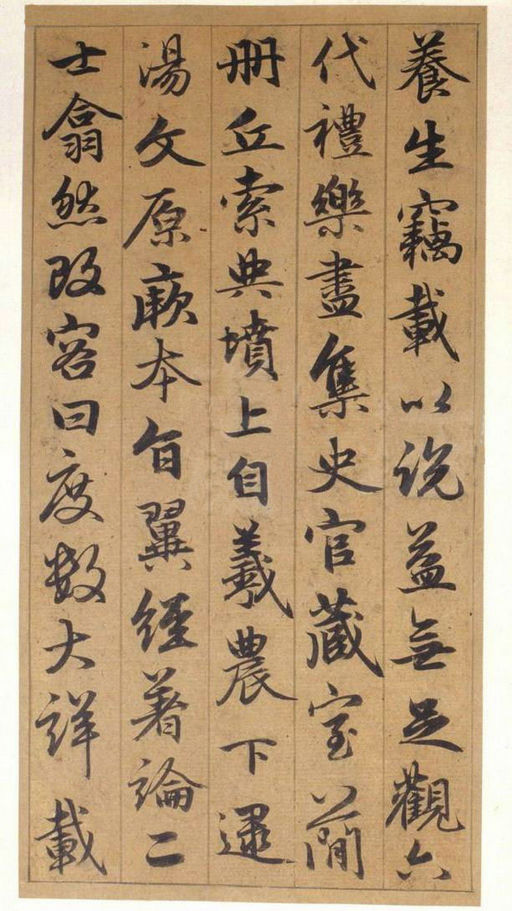 養生竊載以說益無足觀六
代禮樂盡集史官藏室蕳
册丘索典墳上自羲農下逮
湯文原厥本旨翼經著論二
士翕然改容曰度數大詳載